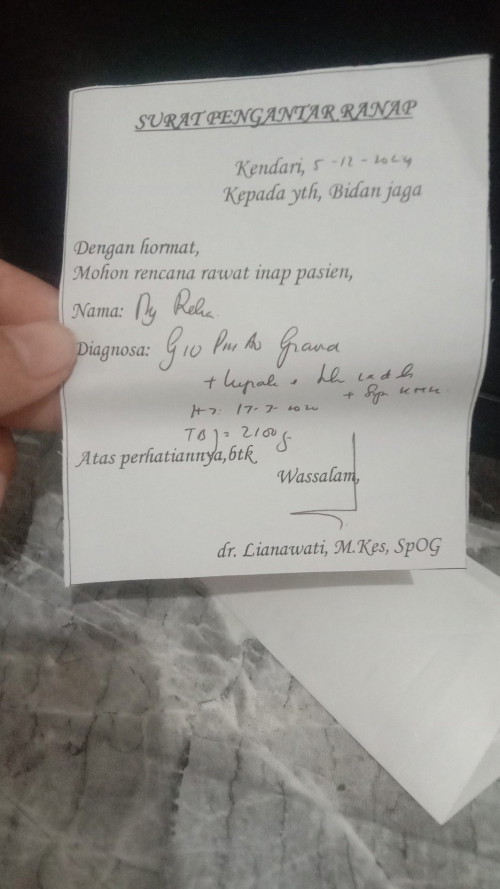 SURAT PENGANTAR RANAP
Kendari, 5-12-2024
Kepada yth, Bidan jaga
Dengan hormat,
Mohon rencana rawat inap pasien,
Nama: Ny Reha
Diagnosa: G10 Grand
+ kepala +
+ Susp
TBJ = 2100 g
Atas perhatiannya,btk
Wassalam,
dr. Lianawati, M.Kes, SpOG